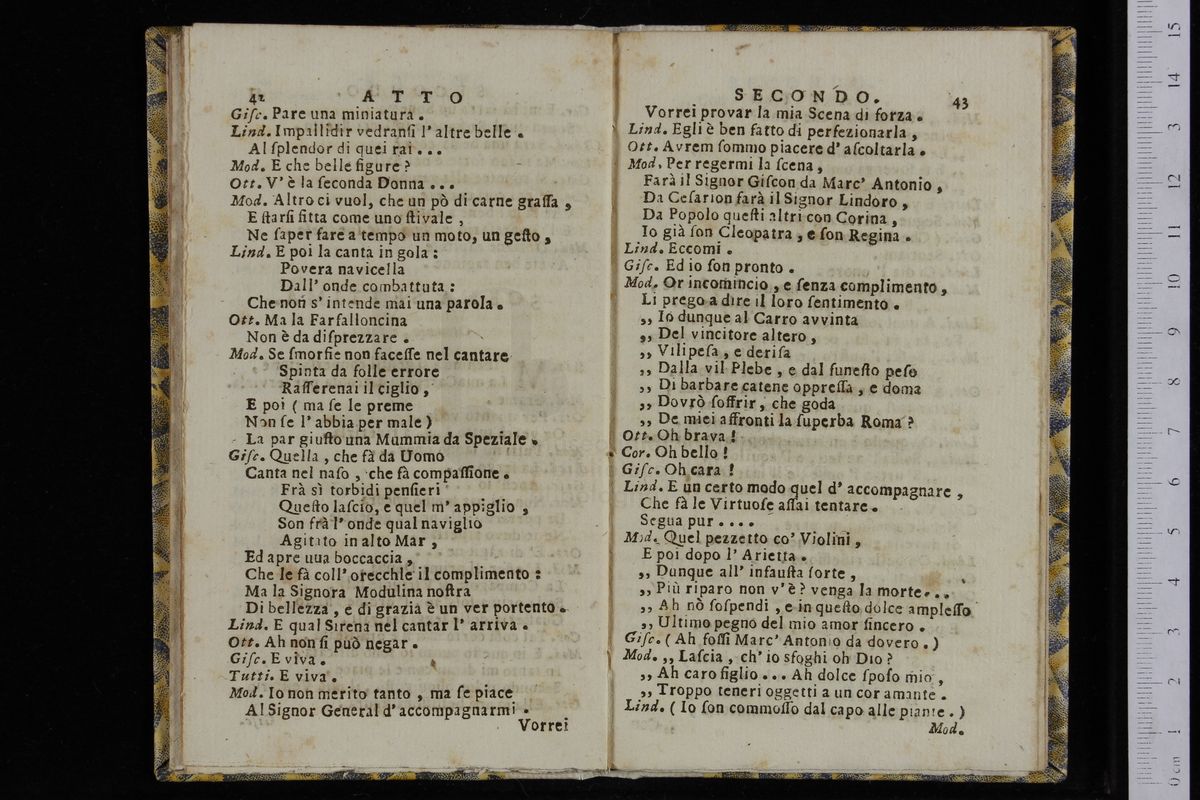 42 A T T O
Giſc. Pare una miniatura .
Lind. Impallidir vedranſi l' altre belle .
Al ſplendor di quei rai . . .
Mod. E che belle figure ?
Ott. V' è la ſeconda Donna . . .
Mod. Altro ci vuol, che un pò di carne graſſa ,
E ſtarſi fitta come uno ſtivale ,
Ne ſaper fare a tempo un moto, un geſto ,
Lind. E poi la canta in gola :
Povera navicella
Dall' onde combattuta :
Che non s' intende mai una parola .
Ott. Ma la Farfalloncina
Non è da diſprezzare .
Mod. Se ſmorfie non faceſſe nel cantare
Spinta da folle errore
Raſſerenai il ciglio ,
E poi ( ma ſe le preme
Non ſe l' abbia per male )
La par giuſto una Mummia da Speziale .
Giſc. Quella , che fà da Uomo
Canta nel naſo , che fà compaſſione .
Frà sì torbidi penſieri
Queſto laſcio, e quel m' appiglio ,
Son frà l' onde qual naviglio
Agitato in alto Mar ,
Ed apre uua boccaccia ,
Che le fà coll' orecchle il complimento :
Ma la Signora Modulina noſtra
Di bellezza , e di grazia è un ver portento .
Lind. E qual Sirena nel cantar l' arriva .
Ott. Ah non ſi può negar .
Giſc. E viva .
Tutti. E viva .
Mod. Io non merito tanto , ma ſe piace
Al Signor General d' accompagnarmi .
Vorrei
SECONDO. 43
Vorrei provar la mia Scena di forza .
Lind. Egli è ben fatto di perfezionarla ,
Ott. Avrem ſommo piacere d' aſcoltarla .
Mod. Per regermi la ſcena ,
Farà il Signor Giſcon da Marc' Antonio ,
Da Ceſarion farà il Signor Lindoro ,
Da Popolo queſti altri con Corina ,
Io già ſon Cleopatra , e ſon Regina .
Lind. Eccomi .
Giſc. Ed io ſon pronto .
Mod. Or incomincio , e ſenza complimento ,
Li prego a dire il loro ſentimento .
,, Io dunque al Carro avvinta
,, Del vincitore altero ,
,, Vilipeſa , e deriſa
,, Dalla vil Plebe , e dal funeſto peſo
,, Di barbare catene oppreſſa , e doma
,, Dovrò ſoffrir , che goda
,, De miei affronti la ſuperba Roma ?
Ott. Oh brava !
Cor. Oh bello !
Giſc. Oh cara !
Lind. E un certo modo quel d' accompagnare ,
Che fà le Virtuoſe aſſai tentare .
Segua pur . . . .
Mod. Quel pezzetto co' Violini ,
E poi dopo l' Arietta .
,, Dunque all' infauſta ſorte ,
,, Più riparo non v' è ? venga la morte . . .
,, Ah nò ſoſpendi , e in queſto dolce ampleſſo
,, Ultimo pegno del mio amor ſincero .
Giſc. ( Ah foſſi Marc' Antonio da dovero . )
Mod. ,, Laſcia , ch' io sfoghi oh Dio ?
,, Ah caro figlio . . . Ah dolce ſpoſo mio ,
,, Troppo teneri oggetti a un cor amante .
Lind. ( Io ſon commoſſo dal capo alle piante . )
Mod.
0 cm 1 2 3 4 5 6 7 8 9 10 11 12 13 14 15